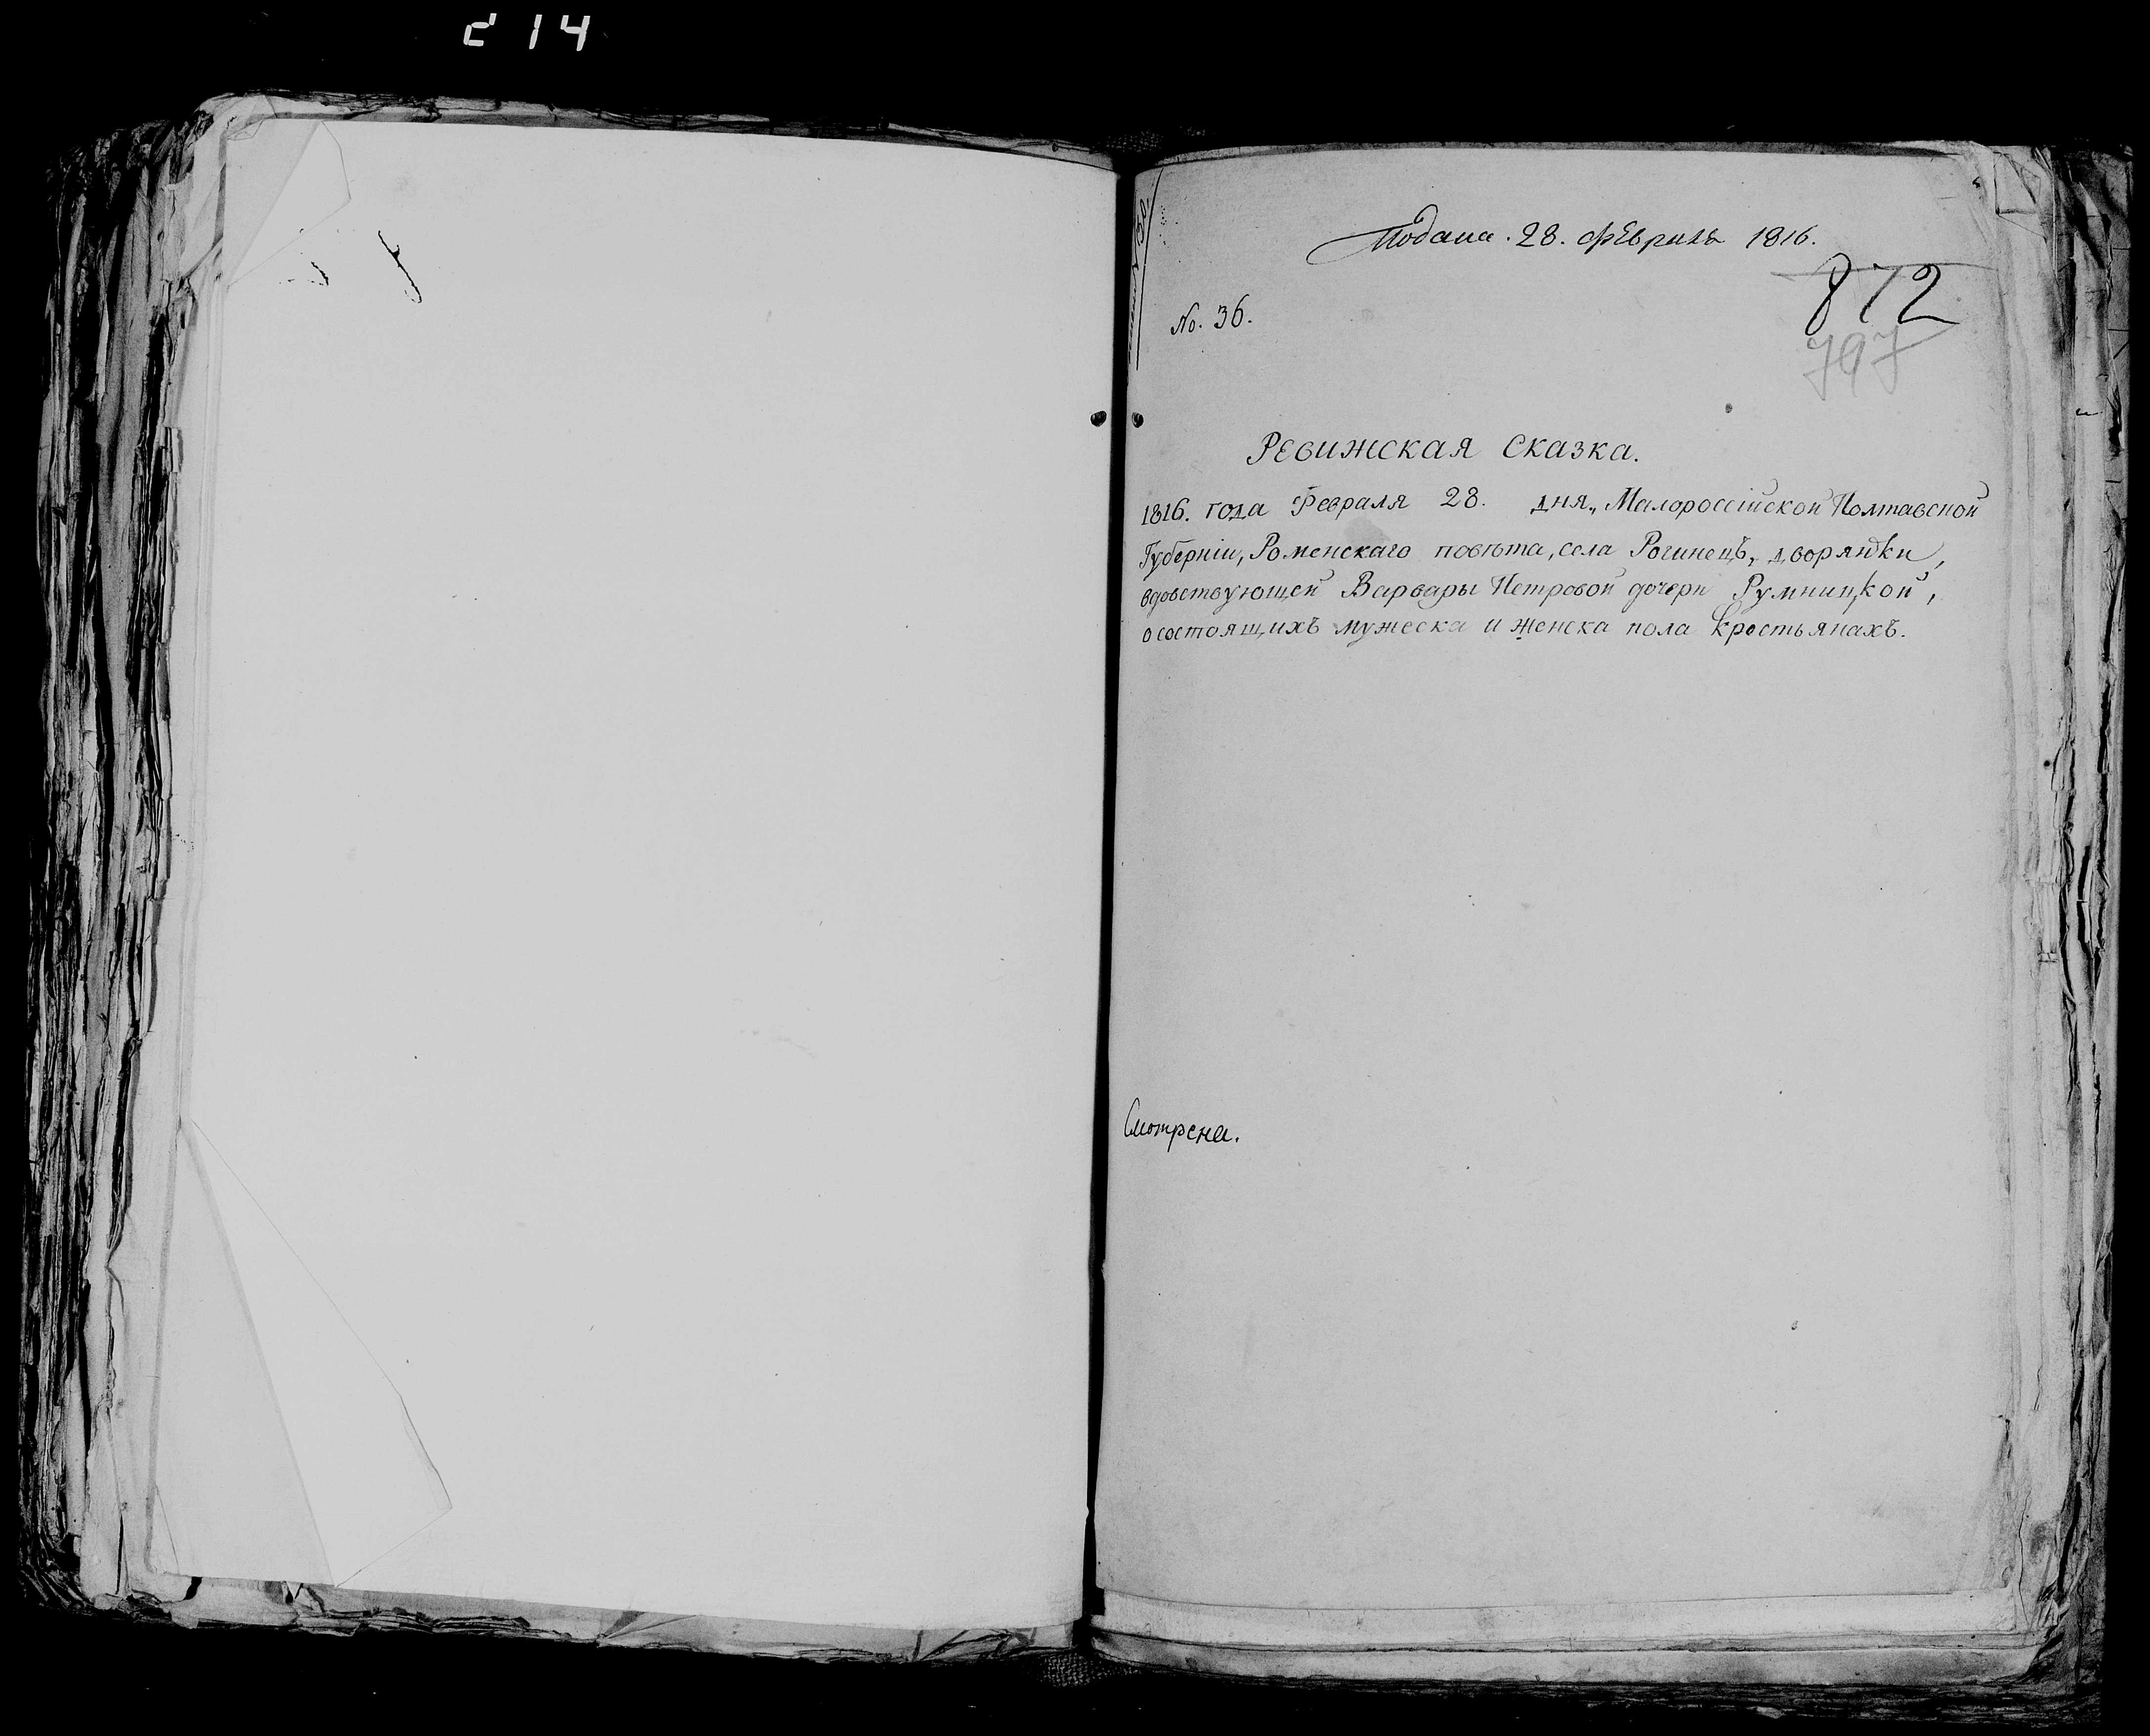 214
Подана. 28. февраля 1816.
872
797
No. 36.
Ревижская сказка.
1816. года Февраля 28. дня„ Малороссійской Полтавской
Губерніи, Роменскаго повѣта, села Рогинецъ, дворянки,
вдовствующей Варвары Петровой дочери Румницкой,
о состоящихъ мужеска и женска пола крестьянахъ.
Смотрена.